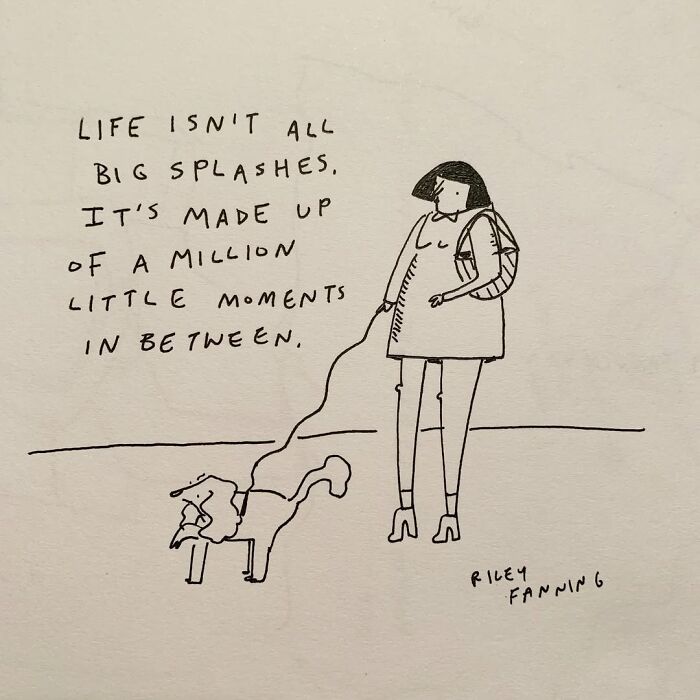 LIFE ISN'T ALL
BIG SPLASHES.
IT'S MADE UP
OF A MILLION
LITTLE MOMENTS
IN BETWEEN.
RILEY
FANNING